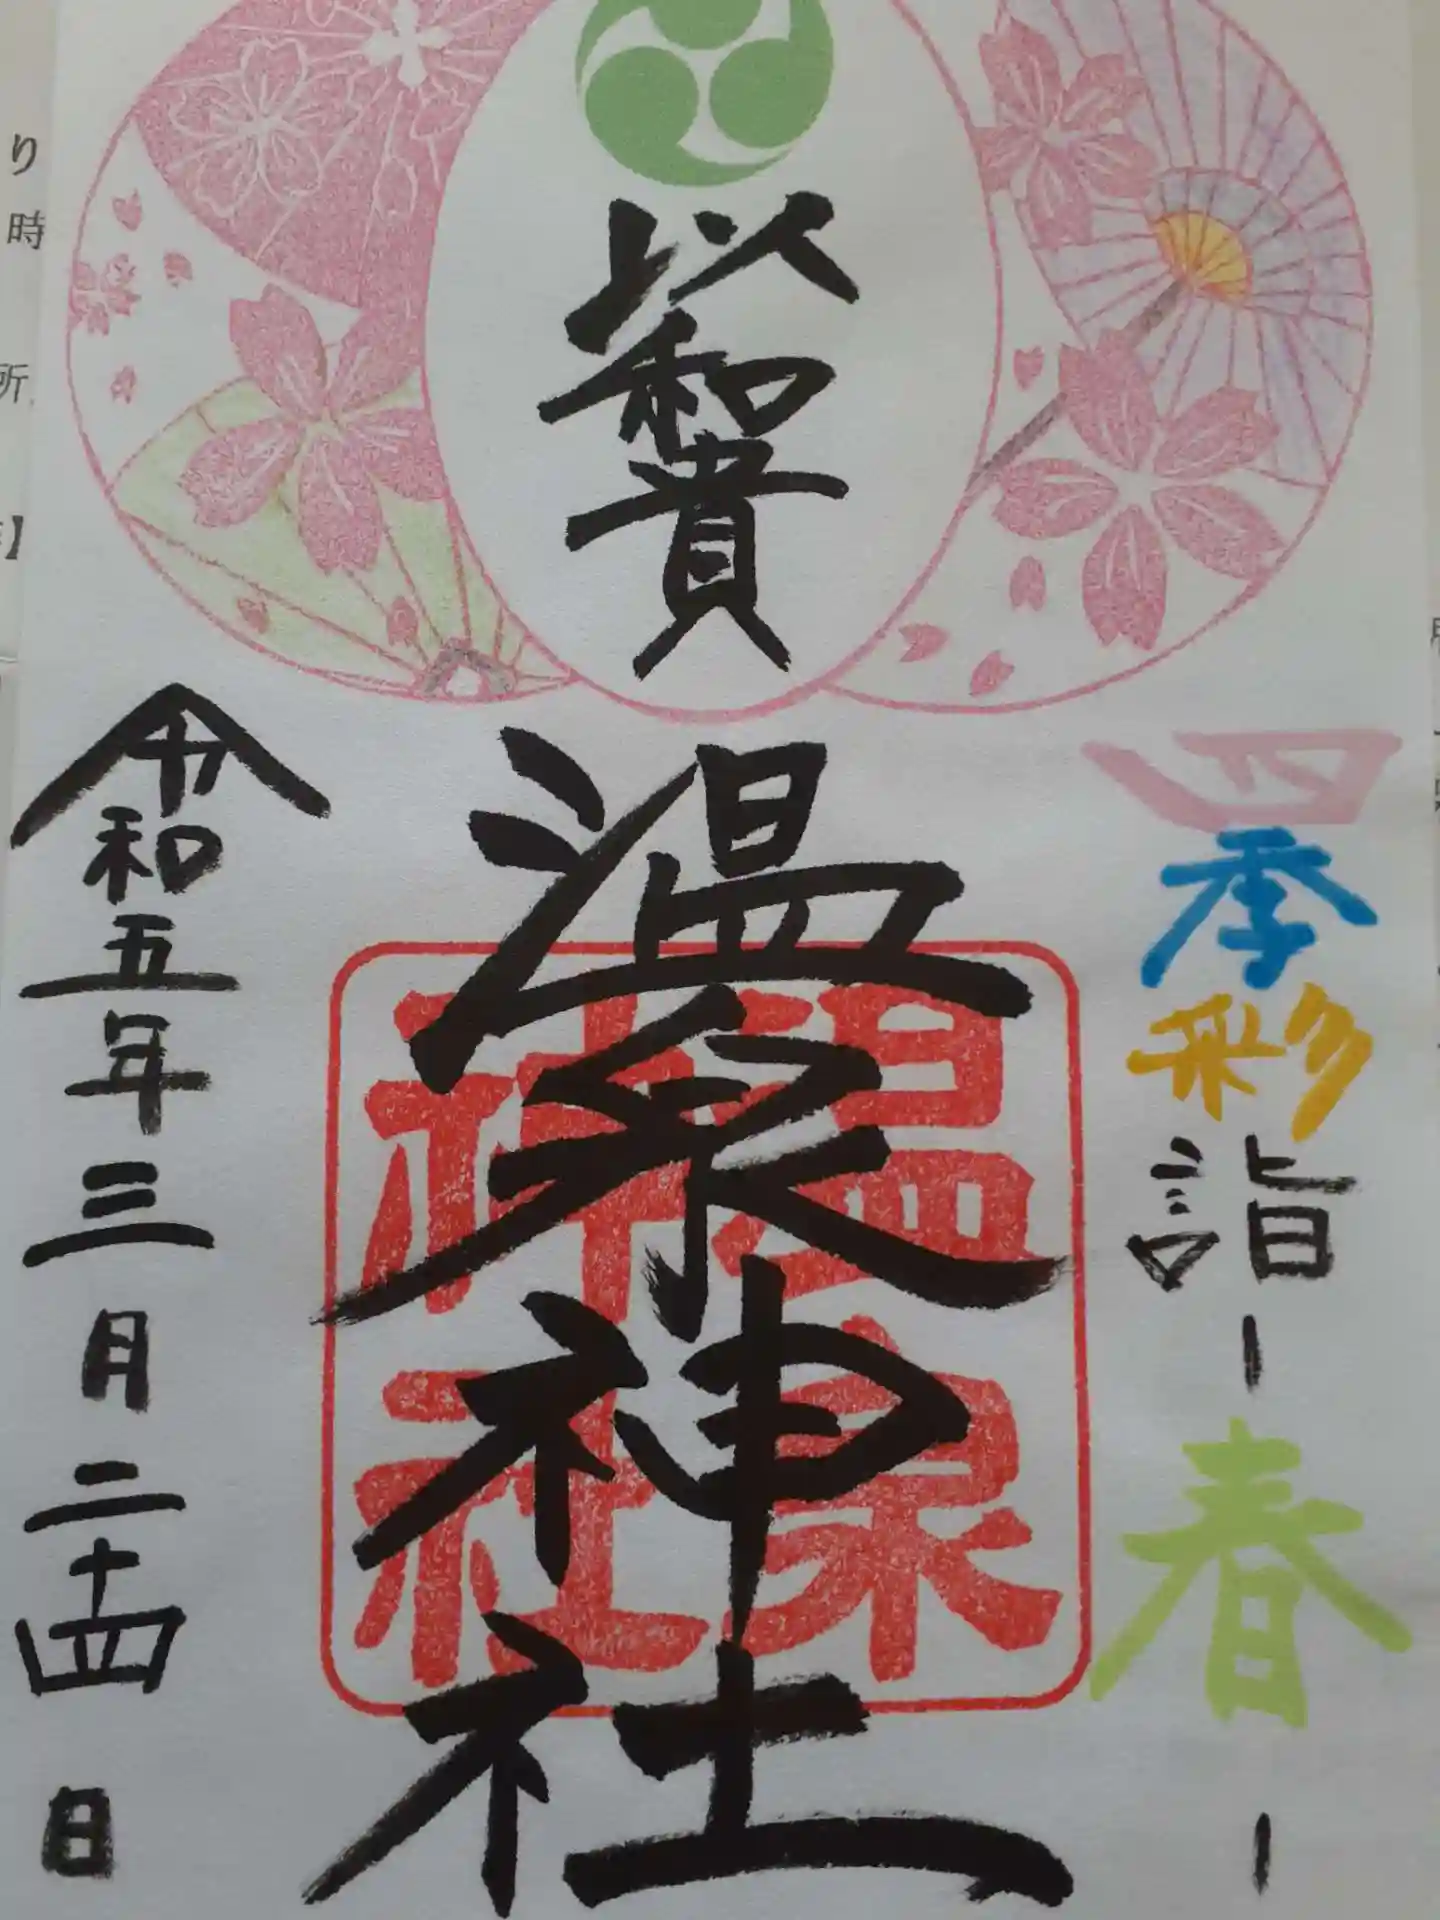 四季彩詣-春-
以和貴
温泉神社
温泉
神社
令和五年三月二十四日
り
時
所